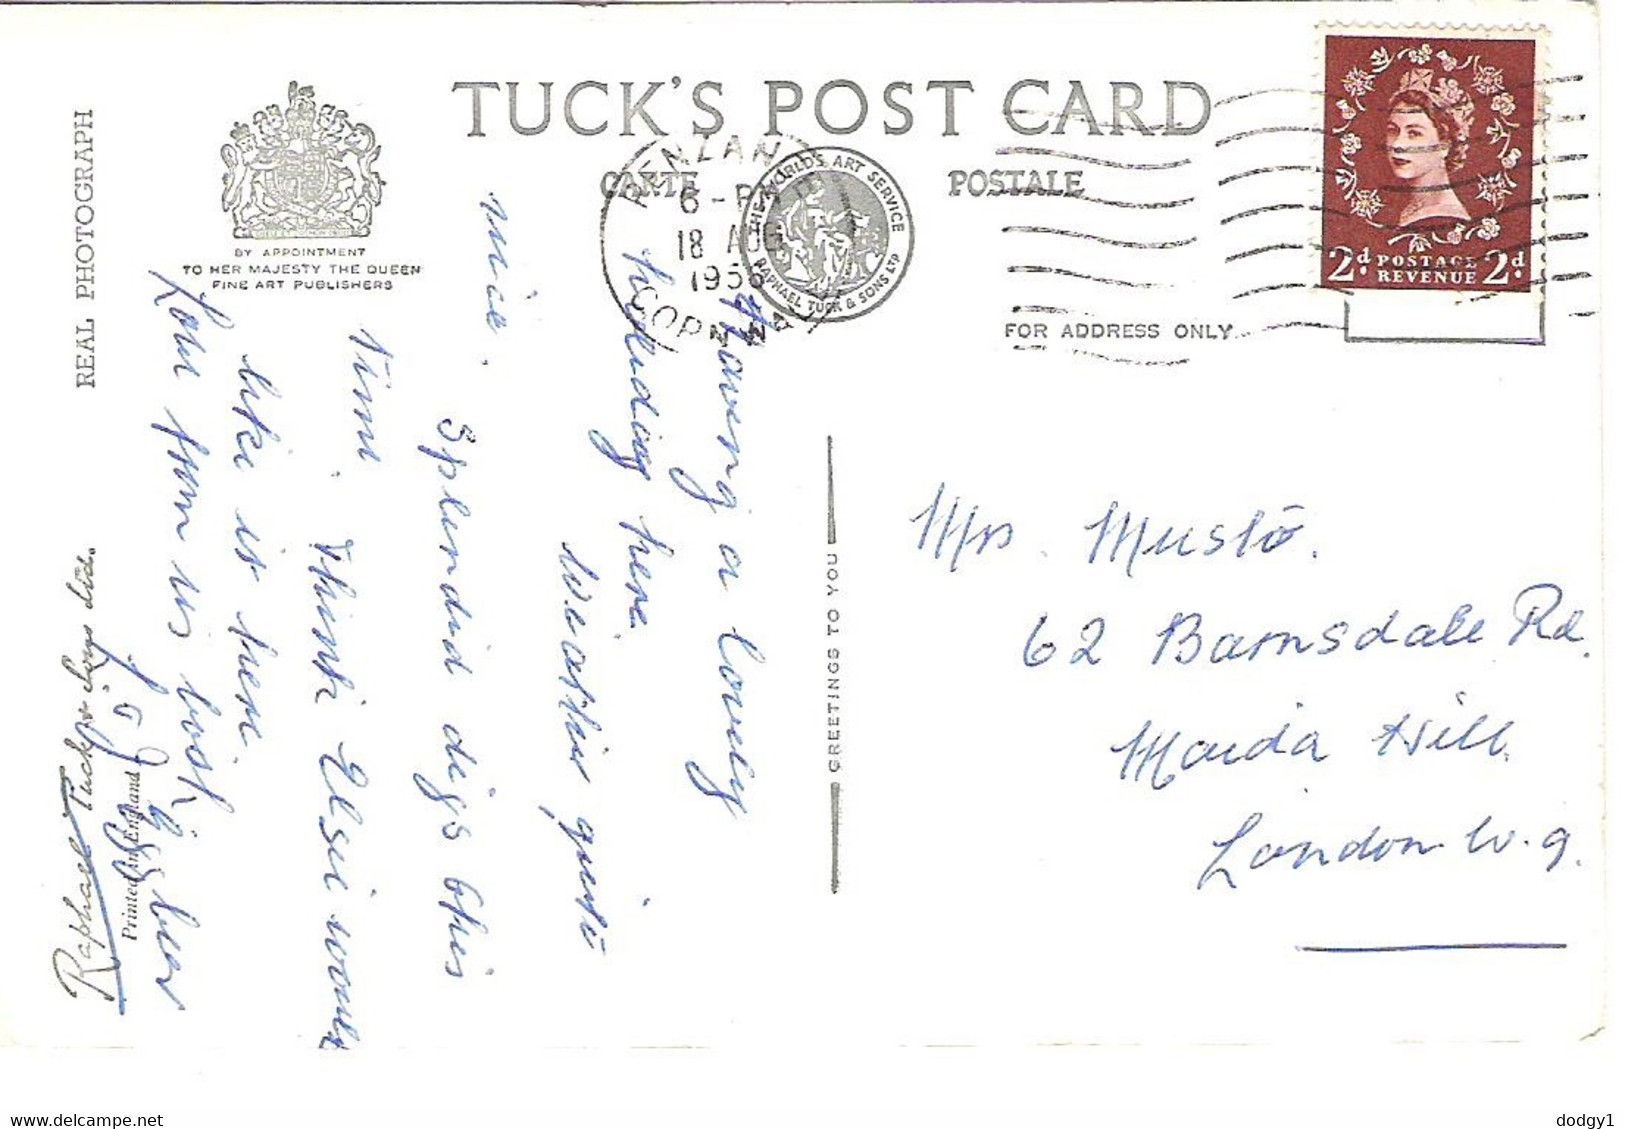 TUCK'S POST CARD
CARTE POSTALE
REAL PHOTOGRAPH
BY APPOINTMENT
TO HER MAJESTY THE QUEEN
FINE ART PUBLISHERS
PENZANCE
6 - PM
18 AUG
1956
CORNWALL
THE WORLD'S ART SERVICE
RAPHAEL TUCK & SONS LTD
2d POSTAGE 2d
REVENUE
FOR ADDRESS ONLY
Having a lovely
holiday here
Weather quite
nice.
Splendid digs this
time. Think Elsie would
like it here.
Love from us both
GREETINGS TO YOU
Mrs. Musto.
62 Barnsdale Rd.
Maida Hill,
London W.9.
Raphael Tuck & Sons Ltd.
Printed in England
dodgy1